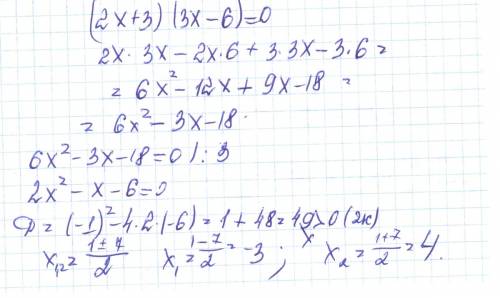 (2x+3) (3x-6)=0
2x · 3x - 2x·6 + 3·3x - 3·6 =
= 6x² - 12x + 9x - 18 =
= 6x² - 3x - 18.
6x² - 3x - 18 = 0 /: 3
2x² - x - 6 = 0
D = (-1)² - 4·2·(-6) = 1 + 48 = 49 > 0 (2к)
x₁,₂ = (1±7)/2 x₁ = (1-7)/2 = -3 ; x₂ = (1+7)/2 = 4.